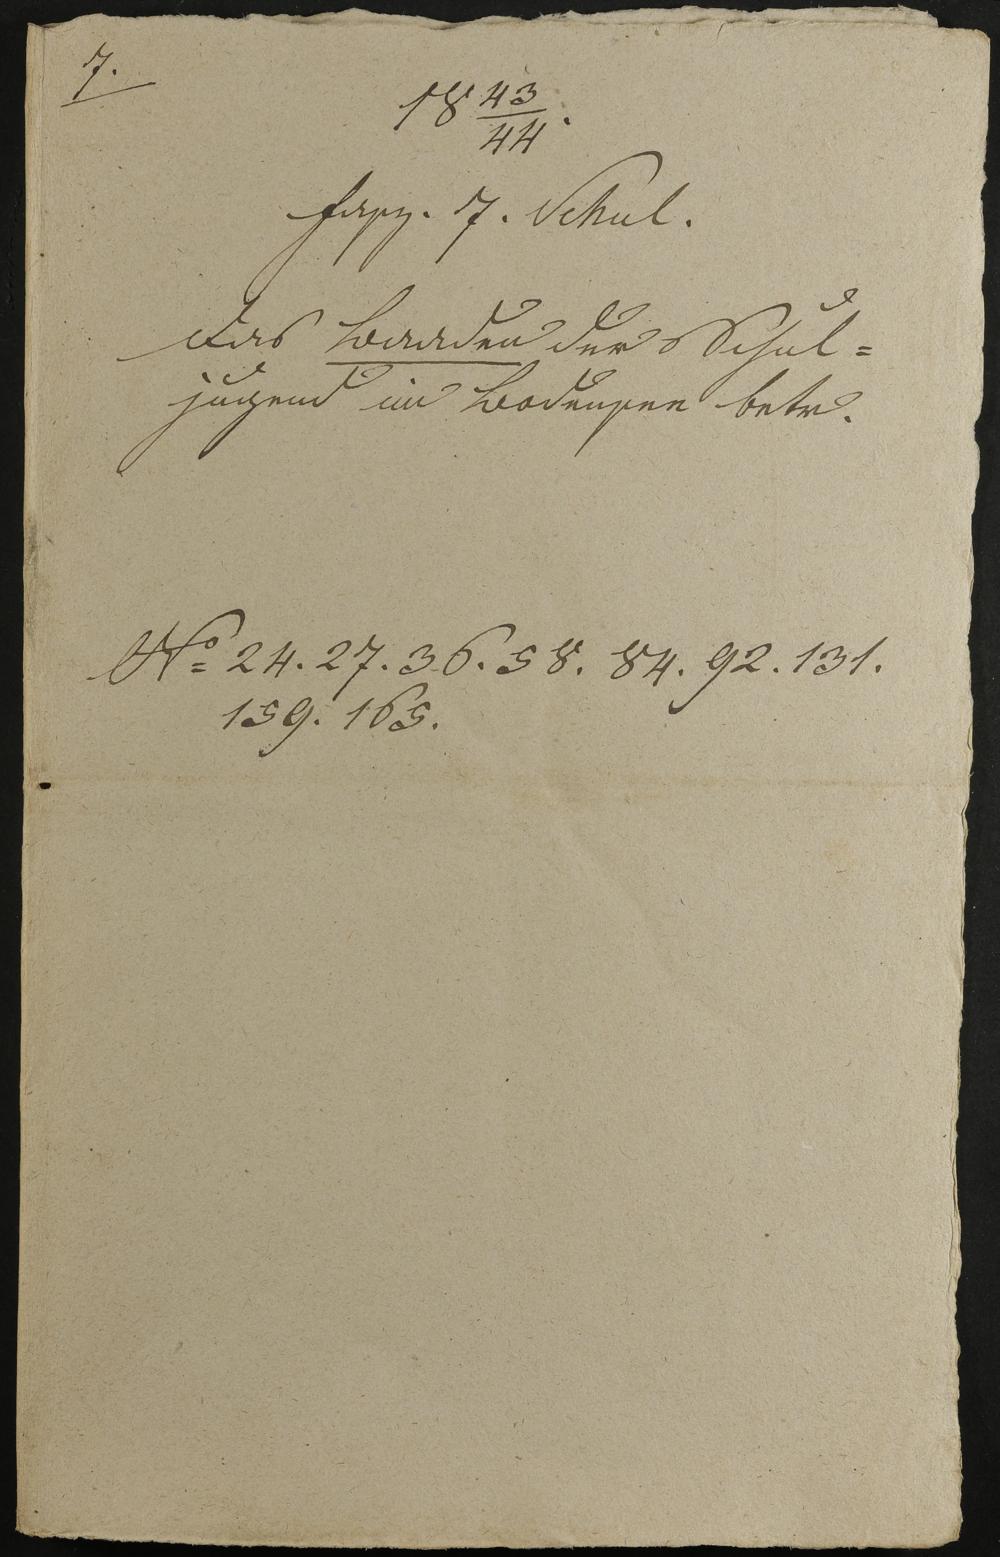 7.
18 43/44.
Fasz. 7. Schul.
Das Baaden der Schul=
jugend im Bodensee betr.
No 24. 27. 36. 58. 84. 92. 131.
159. 165.